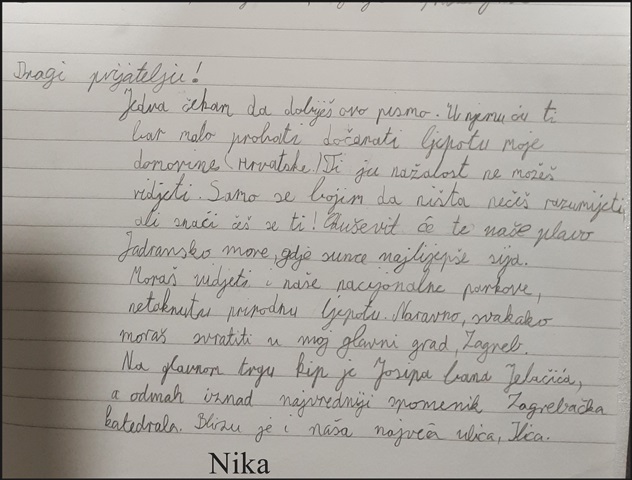 Dragi prijatelju!
Jedva čekam da dobiješ ovo pismo. U njemu ću ti
bar malo probati dočarati ljepotu moje
domovine (Hrvatske!) Ti ju nažalost ne možeš
vidjeti. Samo se bojim da ništa nećiš razumijeti,
ali snaći ćeš se ti! Oduševit će te naše plavo
Jadransko more, gdje sunce najlijepše sija.
Moraš vidjeti i naše nacijonalne parkove,
netaknutu prirodnu ljepotu. Naravno, svakako
moraš svratiti u moj glavni grad, Zagreb.
Na glavnom trgu kip je Josipa bana Jelačića,
a odmah iznad najvredniji spomenik Zagrebačka
katedrala. Blizu je i naša najveća ulica, Ilica.
Nika